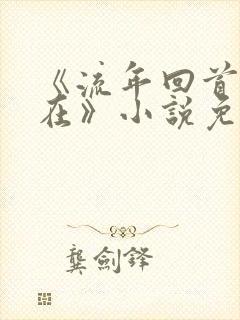 《流年回首
在》小說免
龔劍鋒